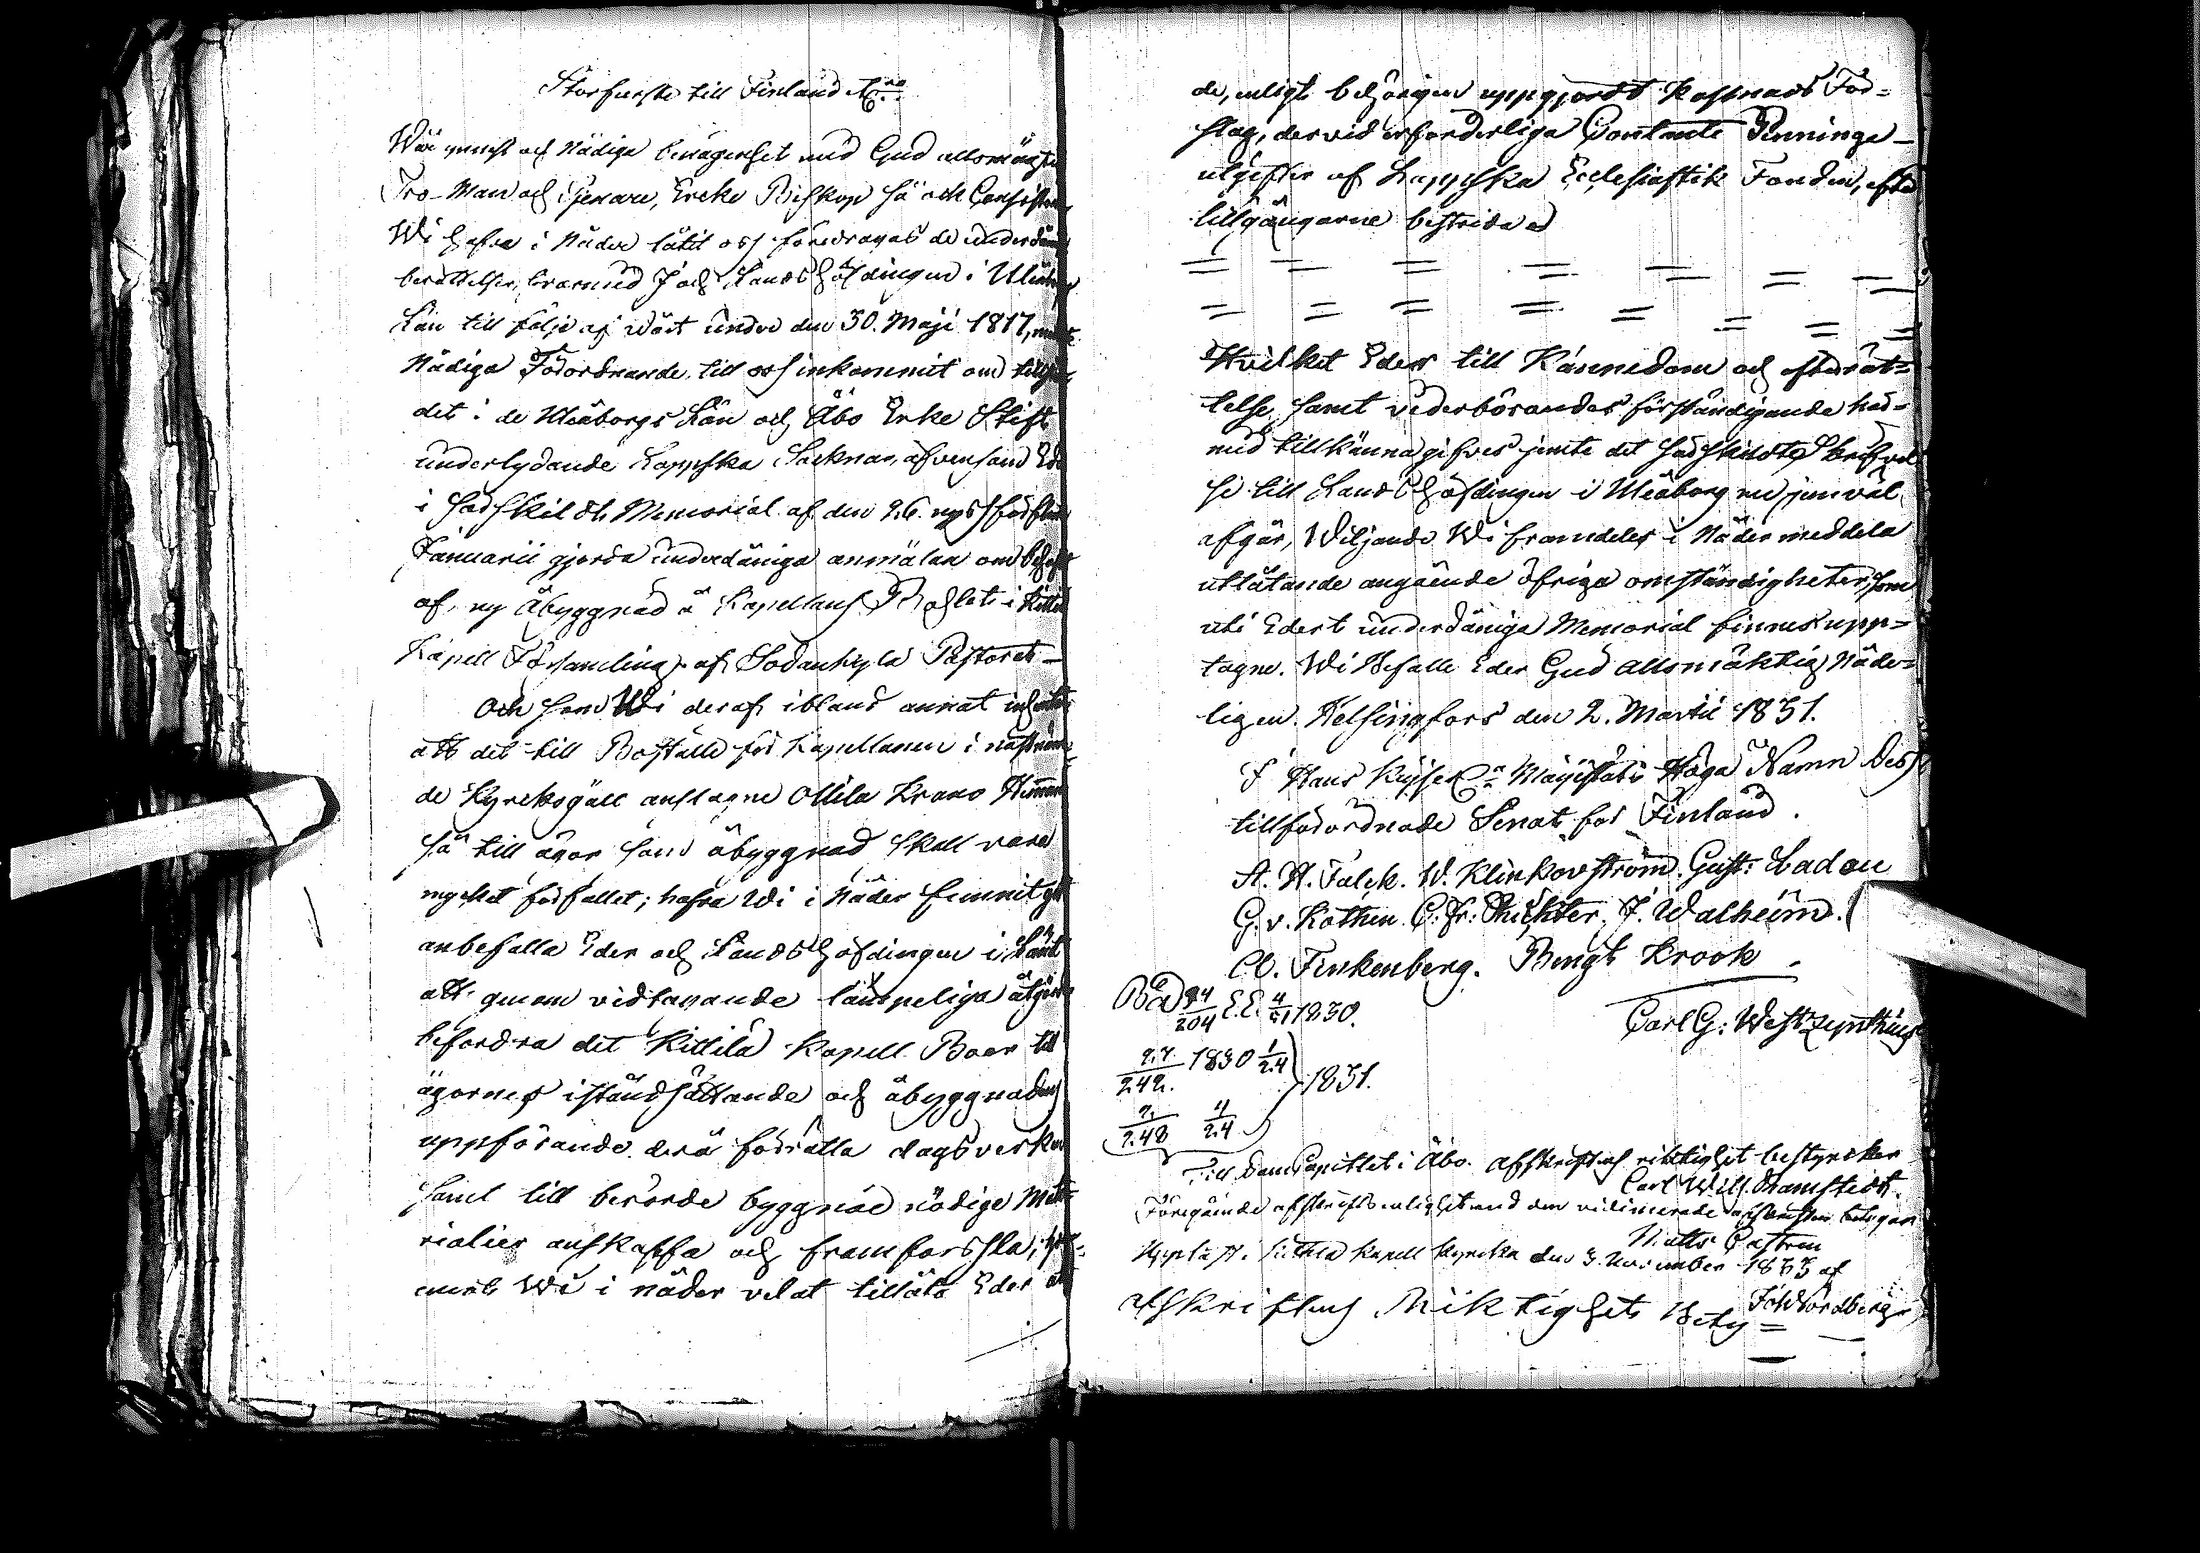 Storfurste till Finland &c:ra
Wår ynnest och Nådiga benägenhet med Gud allsmägtig
Tro-Man och Tjenare, Ercke Biskop så ock Consistor
Wi hafva i Nåder låtit oss föredragas de underdån
berättelser, hvarmed J och Landshöfdingen i Uleåborgs
Län till följe af wårt under den 30. Maji 1817,
Nådiga Förordnande till oss inkommit om
det i de Uleåborgs Län och Åbo Erke Stift
underlydande Lappska Socknar, äfvensom Ede
i särskildt Memorial af den 26. nyss förflutne
Januarii gjorda underdåniga anmälan om behof
af ny Åbyggnad å Kapellans Bohlet i Kittilä
Kapell Församling af Sodankylä Pastorat –
Och som Wi deraf ibland annat inhemtat
att det till Boställe för Kapellanen i nästnäm
de Kyrckogäll anslagne Ollila Krono Hemman
så till ägor som åbyggnad skall vara
mycket förfallet; hafva Wi i Nåder funnit godt
anbefalla Eder och Landshöfdingen i Länet
att genom vidtagande lämpeliga åtgärder
befordra det Kittilä Kapell Boer till
ägornes iståndsättande och åbyggnadens
uppförande derå förrätta dagsverken
samt till berörde byggnad nödige Mate
rialier anskaffa och framforssla;
emot Wi i nåder velat tillåta Eder att
de, enligt behörigen uppgjordt Kostnads För=
slag, dervid erforderliga Contante Penninge-
utgifter af Lappska Ecclesiastik Fonden, efter
tillgångarne bestridas
Hvilket Eder till Kännedom och efterrät=
telse, samt vederbörandes förständigande här=
med tillkännagifves jemte det särskildte Bref
se till Landshöfdingen i Uleåborg nu jemväl
afgår, Wiljande Wi framdeles i Nåder meddela
utlåtande angående öfriga omständigheter, som
uti Edert underdåniga Memorial finnes upp=
tagne. Wi Befalle Eder Gud Allsmäktig Nåde=
ligen. Helsingfors den 2. Martii 1831.
I Hans Kejserl:a Majestäts Höga Namn Dess
tillförordnade Senat för Finland.
A. H. Falck. W. Klinkowström. Gust: Ladau
G. v. Kothen. C: Fr: Richter. J. Walheim.
Cl. Finkenberg. Bengt Krook.
Carl G: Westzynthius
204 E.E. 4/51 1830.
242. 1830 1/24
1831.
2/248 4/24
Till DomCapitlet i Åbo. Afskriftens riktighet bestyrcker
Carl Wilh. Ramstedt.
Föregående afskrifts enlighet med den vidimerade afskriften betygar
Matts Castrén
Uppläst i Kittilä Kapell Kyrcka den 3 November 1833 af
Joh Nordberg
Afskriftens Riktighet Bety=